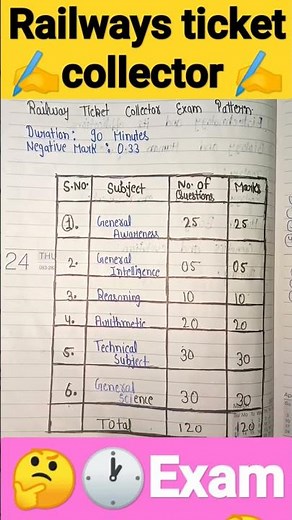 Railways ticket
✍️collector ✍️
Railway Ticket Collector Exam Pattern:
Duration: 90 Minutes
Negative Mark: 0.33
S.No. Subject No. of Questions Marks
1. General Awareness 25 25
24 THU
2. General Intelligence 05 05
3. Reasoning 10 10
4. Arithmetic 20 20
5. Technical Subject 30 30
6. General Science 30 30
Total 120 120
🤔🕐Exam